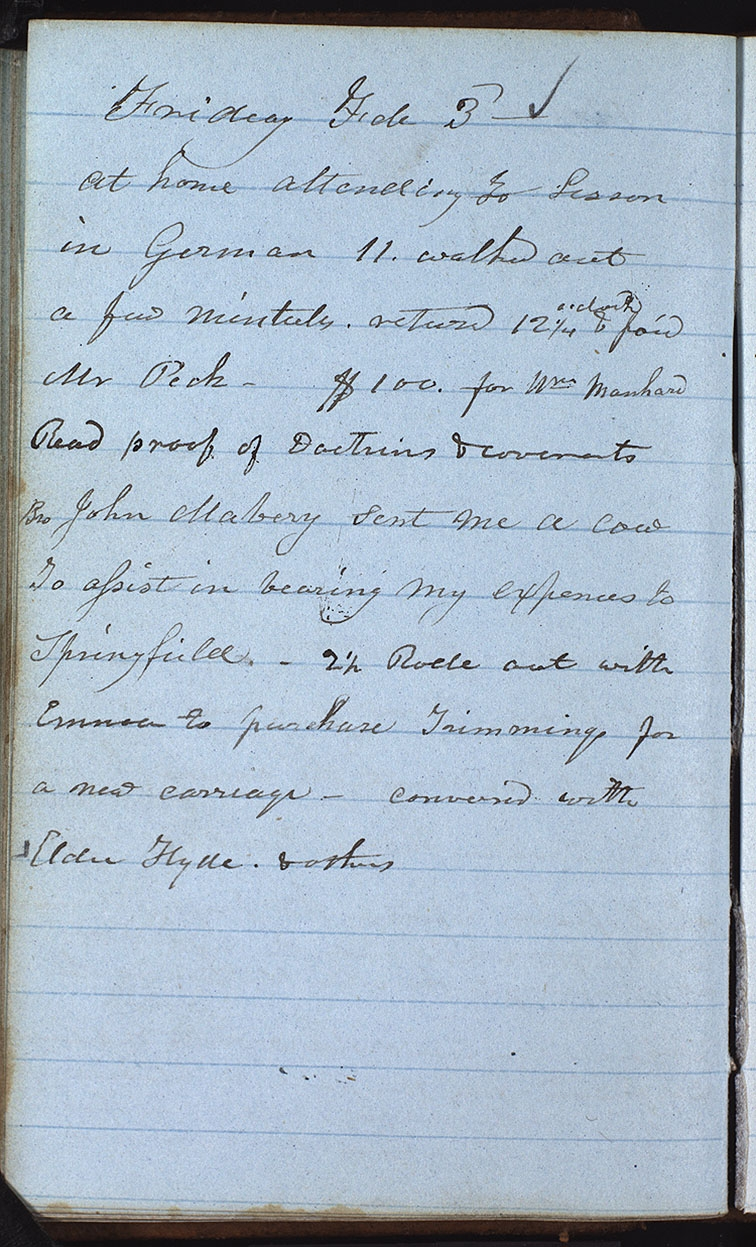 Friday Feb 3— ✓
at home attending to Lesson
in German 11. walked out
a few minutes. return 12 1/4 & paid
Mr Peck - $100. for Wm Manhard
Read proof of Doctrins & covenants
Bro John Mabery sent me a cow
To assist in bearing my expences to
Springfield. - 2 1/2 Rode out with
Emma to purchase Trimmings for
a new carriage - conversed with
Elder Hyde. & others